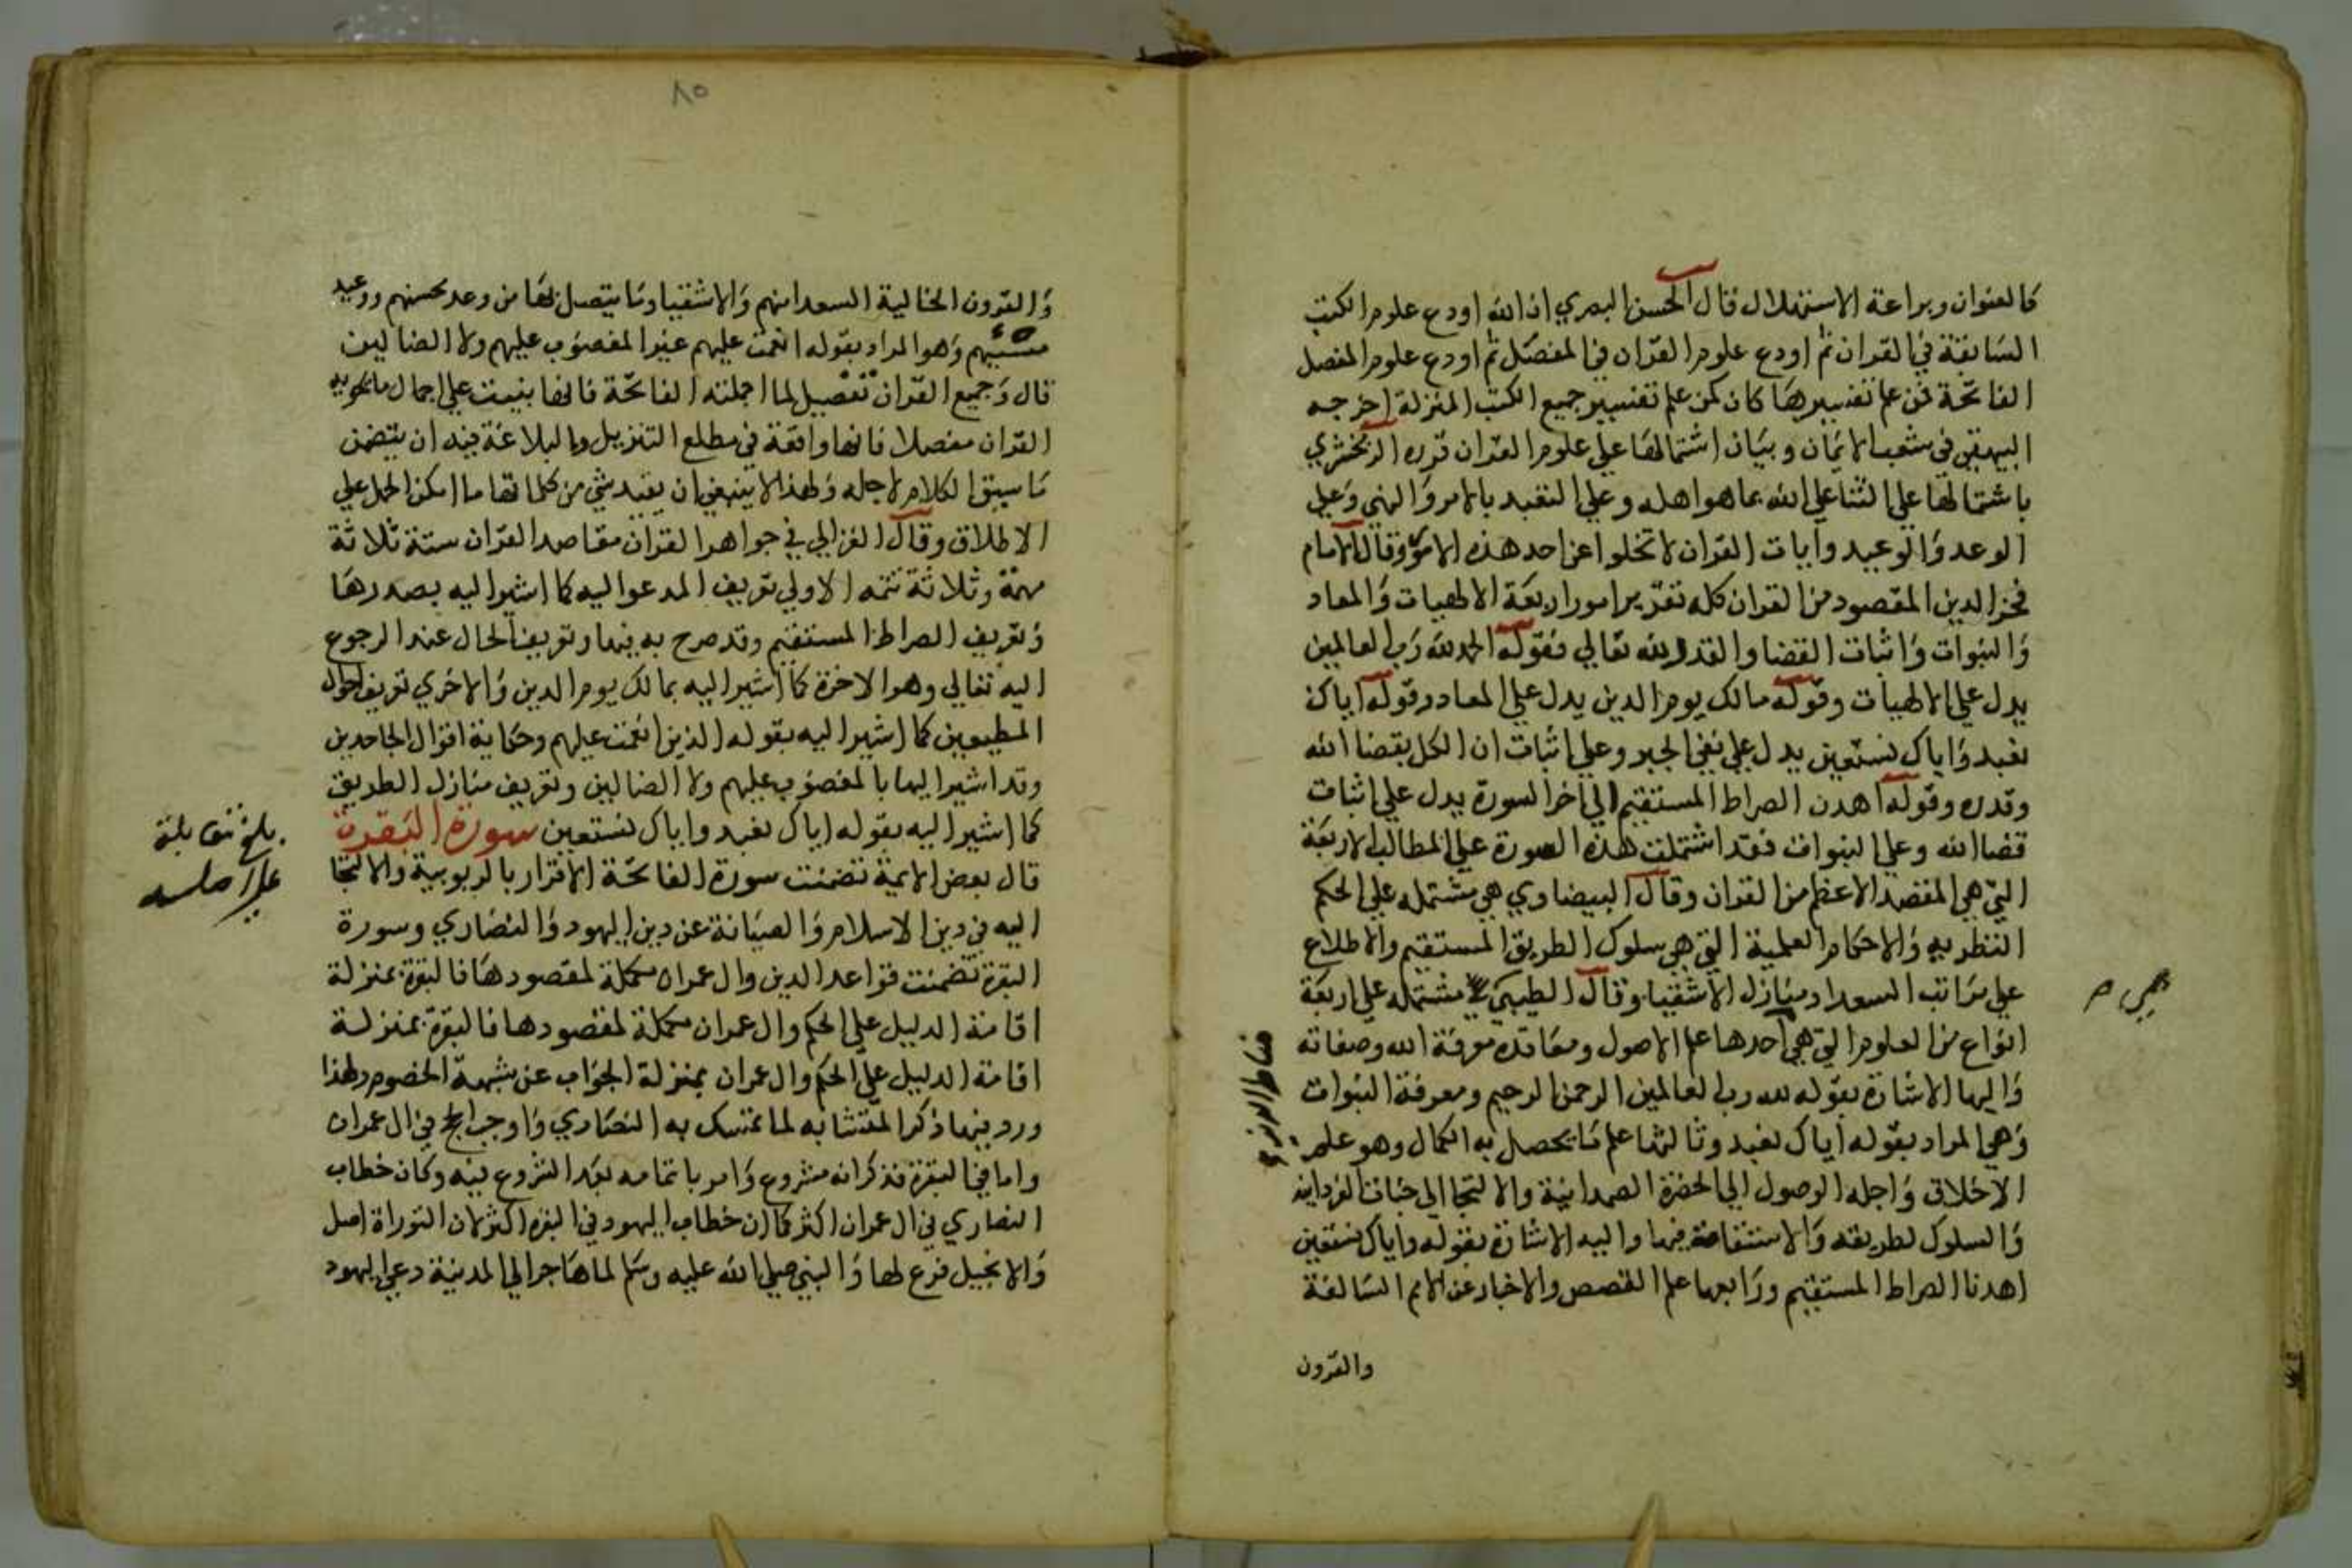 كالعنوان وبراعة الاستهلال قال الحسن البصري ان الله اودع علوم الكتب
السابقة في القران ثم اودع علوم القران في المفصل ثم اودع علوم المفصل
الفاتحة فمن علم تفسيرها كان كمن علم تفسير جميع الكتب المنزلة اخرجه
البيهقي في شعب الايمان وبيان اشتمالها علي علوم القران قرره الزمخشري
باشتمالها علي الثنا علي الله بما هو اهله وعلي التعبد بالامر والنهي وعلي
الوعد والوعيد وايات القران لا تخلوا عن احد هذه الامور وقال الامام
فخر الدين المقصود من القران كله تقرير امور اربعة الالهيات والمعاد
والنبوات واثبات القضا والقدر لله تعالي فقوله الحمد لله رب العالمين
يدل علي الالهيات وقوله مالك يوم الدين يدل علي المعاد وقوله اياك
نعبد واياك نستعين يدل علي نفي الجبر وعلي اثبات ان الكل بقضا الله
وقدره وقوله اهدن الصراط المستقيم الي اخر السورة يدل علي اثبات
قضا الله وعلي النبوات فقد اشتملت هذه السورة علي المطالب الاربعة
التي هي المقصد الاعظم من القران وقال البيضاوي هي مشتمله علي الحكم
النظريه والاحكام العملية التي هي سلوك الطريق المستقيم والاطلاع
علي مراتب السعدا ومنازل الاشقيا وقال الطيبي هي مشتمله علي اربعة
انواع من العلوم التي هي احدها علم الاصول ومعاقده معرفة الله وصفاته
واليها الاشارة بقوله لله رب العالمين الرحمن الرحيم ومعرفة النبوات
وهي المراد بقوله اياك نعبد وثالثها علم ما يحصل به الكمال وهو علم
الاخلاق واجله الوصول الي الحضرة الصمدانية والالتجا الي جناب الفردانيه
والسلوك لطريقه والاستقامة فيها واليه الاشارة بقوله واياك نستعين
اهدنا الصراط المستقيم ورابعها علم القصص والاخبار عن الامم السالفة
والقرون
٨٥
والقرون الخالية السعدا منهم والاشقيا وما يتصل بها من وعد محسنهم ووعيد
مسيئهم وهو المراد بقوله انعمت عليهم غير المغضوب عليهم ولا الضالين
قال وجميع القران تفصيل لما اجملته الفاتحة فانها بنيت علي اجمال ما يحويه
القران مفصلا فانها واقعة في مطلع التنزيل والبلاغة فيه ان يتضمن
ما سيق الكلام لاجله ولهذا لا ينبغي ان يقيد شي من كلماتها ما امكن الحمل علي
الاطلاق وقال الغزالي في جواهر القران مقاصد القران ستة ثلاثة
مهمة وثلاثة تتمه الاولي تعريف المدعوا اليه كما اشير اليه بصدرها
وتعريف الصراط المستقيم وقد صرح به فيها وتعريف الحال عند الرجوع
اليه تعالي وهو الاخرة كما اشير اليه بمالك يوم الدين والاخري تعريف احوال
المطيعين كما اشير اليه بقوله الذين انعمت عليهم وحكاية اقوال الجاحدين
وقد اشير اليها بالمغضوب عليهم ولا الضالين وتعريف منازل الطريق
كما اشير اليه بقوله اياك نعبد واياك نستعين سورة البقرة
قال بعض الايمة تضمنت سورة الفاتحة الاقرار بالربوبية والالتجا
اليه في دين الاسلام والصيانة عن دين اليهود والنصاري وسورة
البقرة تضمنت قواعد الدين وال عمران مكملة لمقصودها فالبقرة بمنزلة
اقامة الدليل علي الحكم وال عمران مكملة لمقصودها فالبقرة بمنزلة
اقامة الدليل علي الحكم وال عمران بمنزلة الجواب عن شبهة الخصوم ولهذا
ورد فيها ذكر المتشابه لما تمسك به النصاري واوجب الحج في ال عمران
واما في البقرة فذكر انه مشروع وامر باتمامه بعد الشروع فيه وكان خطاب
النصاري في ال عمران اكثر كما ان خطاب اليهود في البقره اكثر لان التوراة اصل
والانجيل فرع لها والنبي صلي الله عليه وسلم لما هاجر الي المدينة دعي اليهود
بلغ مقابلة
علي اصله